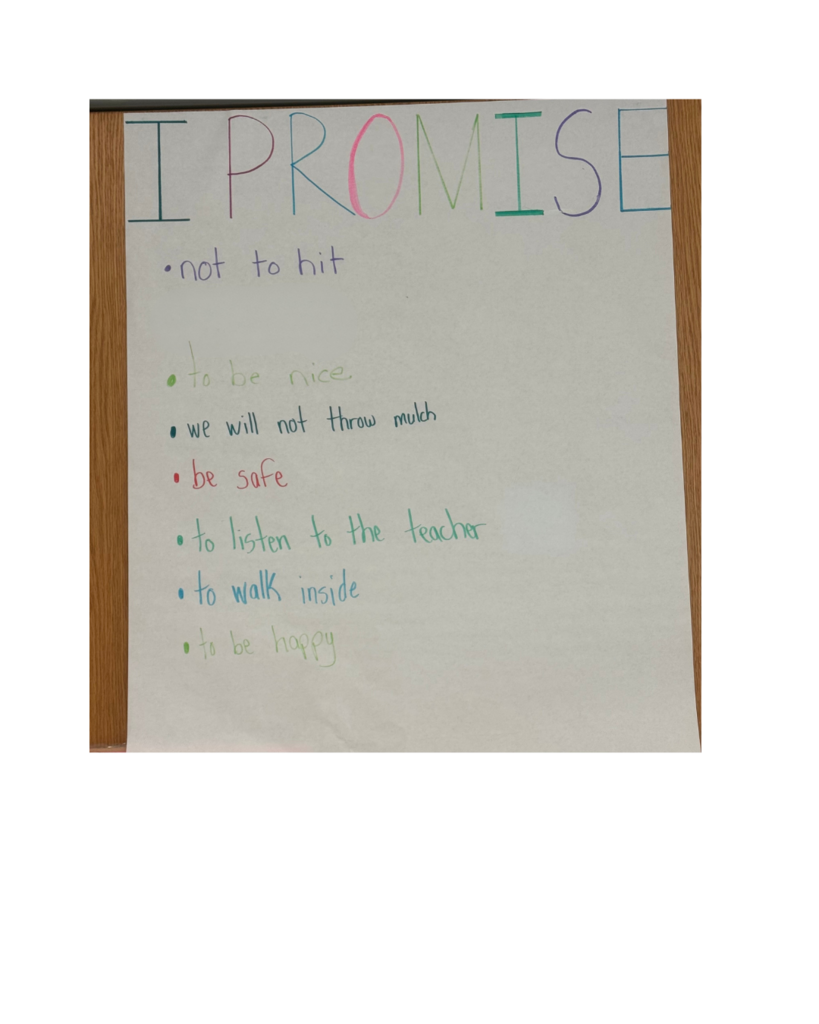 I PROMISE
• not to hit
• to be nice
• we will not throw mulch
• be safe
• to listen to the teacher
• to walk inside
• to be happy